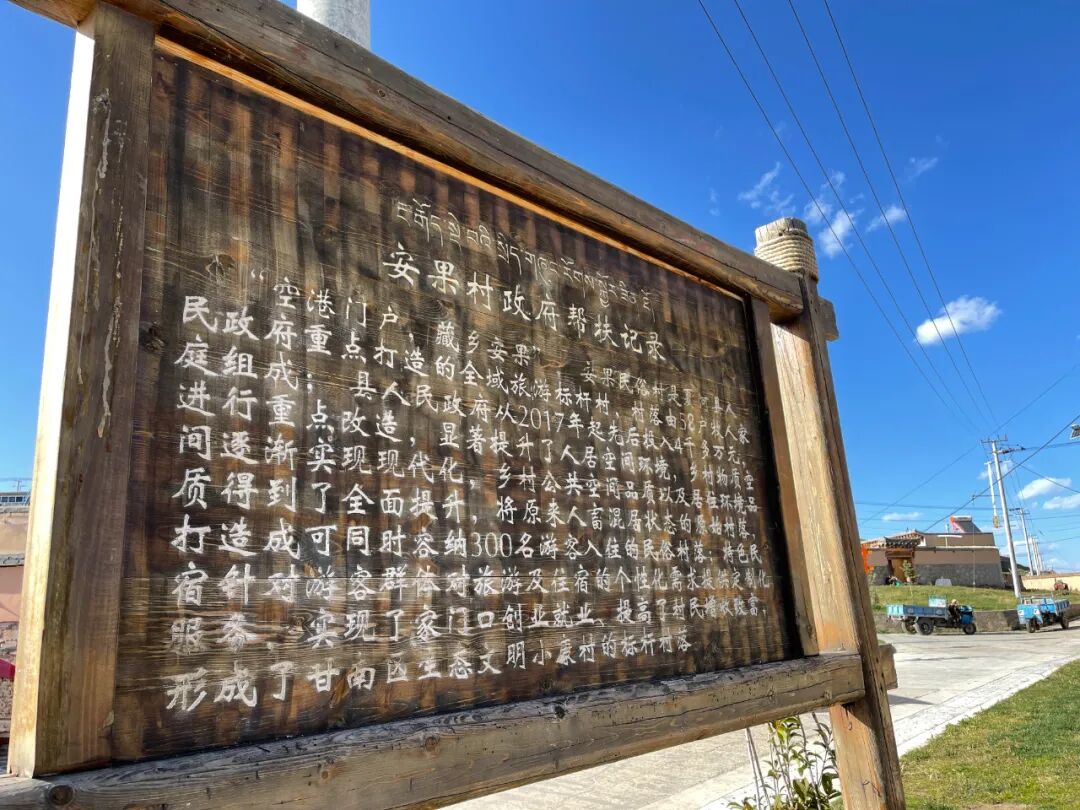 སྡེ་བའི་སྲིད་གཞུང་རོགས་སྐྱོར་ཟིན་ཐོ།
安果村政府帮扶记录
“空港门户，藏乡安果” 安果民俗村是夏河县人
民政府重点打造的全域旅游标杆村，村落由58户牧人家
庭组成；县人民政府从2017年起先后投入4千多万元，
进行重点改造，显著提升了人居空间环境，乡村物质空
间逐渐实现现代化，乡村公共空间品质以及居住环境品
质得到了全面提升，将原来人畜混居状态的原始村落，
打造成可同时容纳300名游客入住的民俗村落；特色民
宿针对游客群体对旅游及住宿的个性化需求提供定制化
服务，实现了家门口创业就业、提高了村民增收致富，
形成了甘南区生态文明小康村的标杆村落